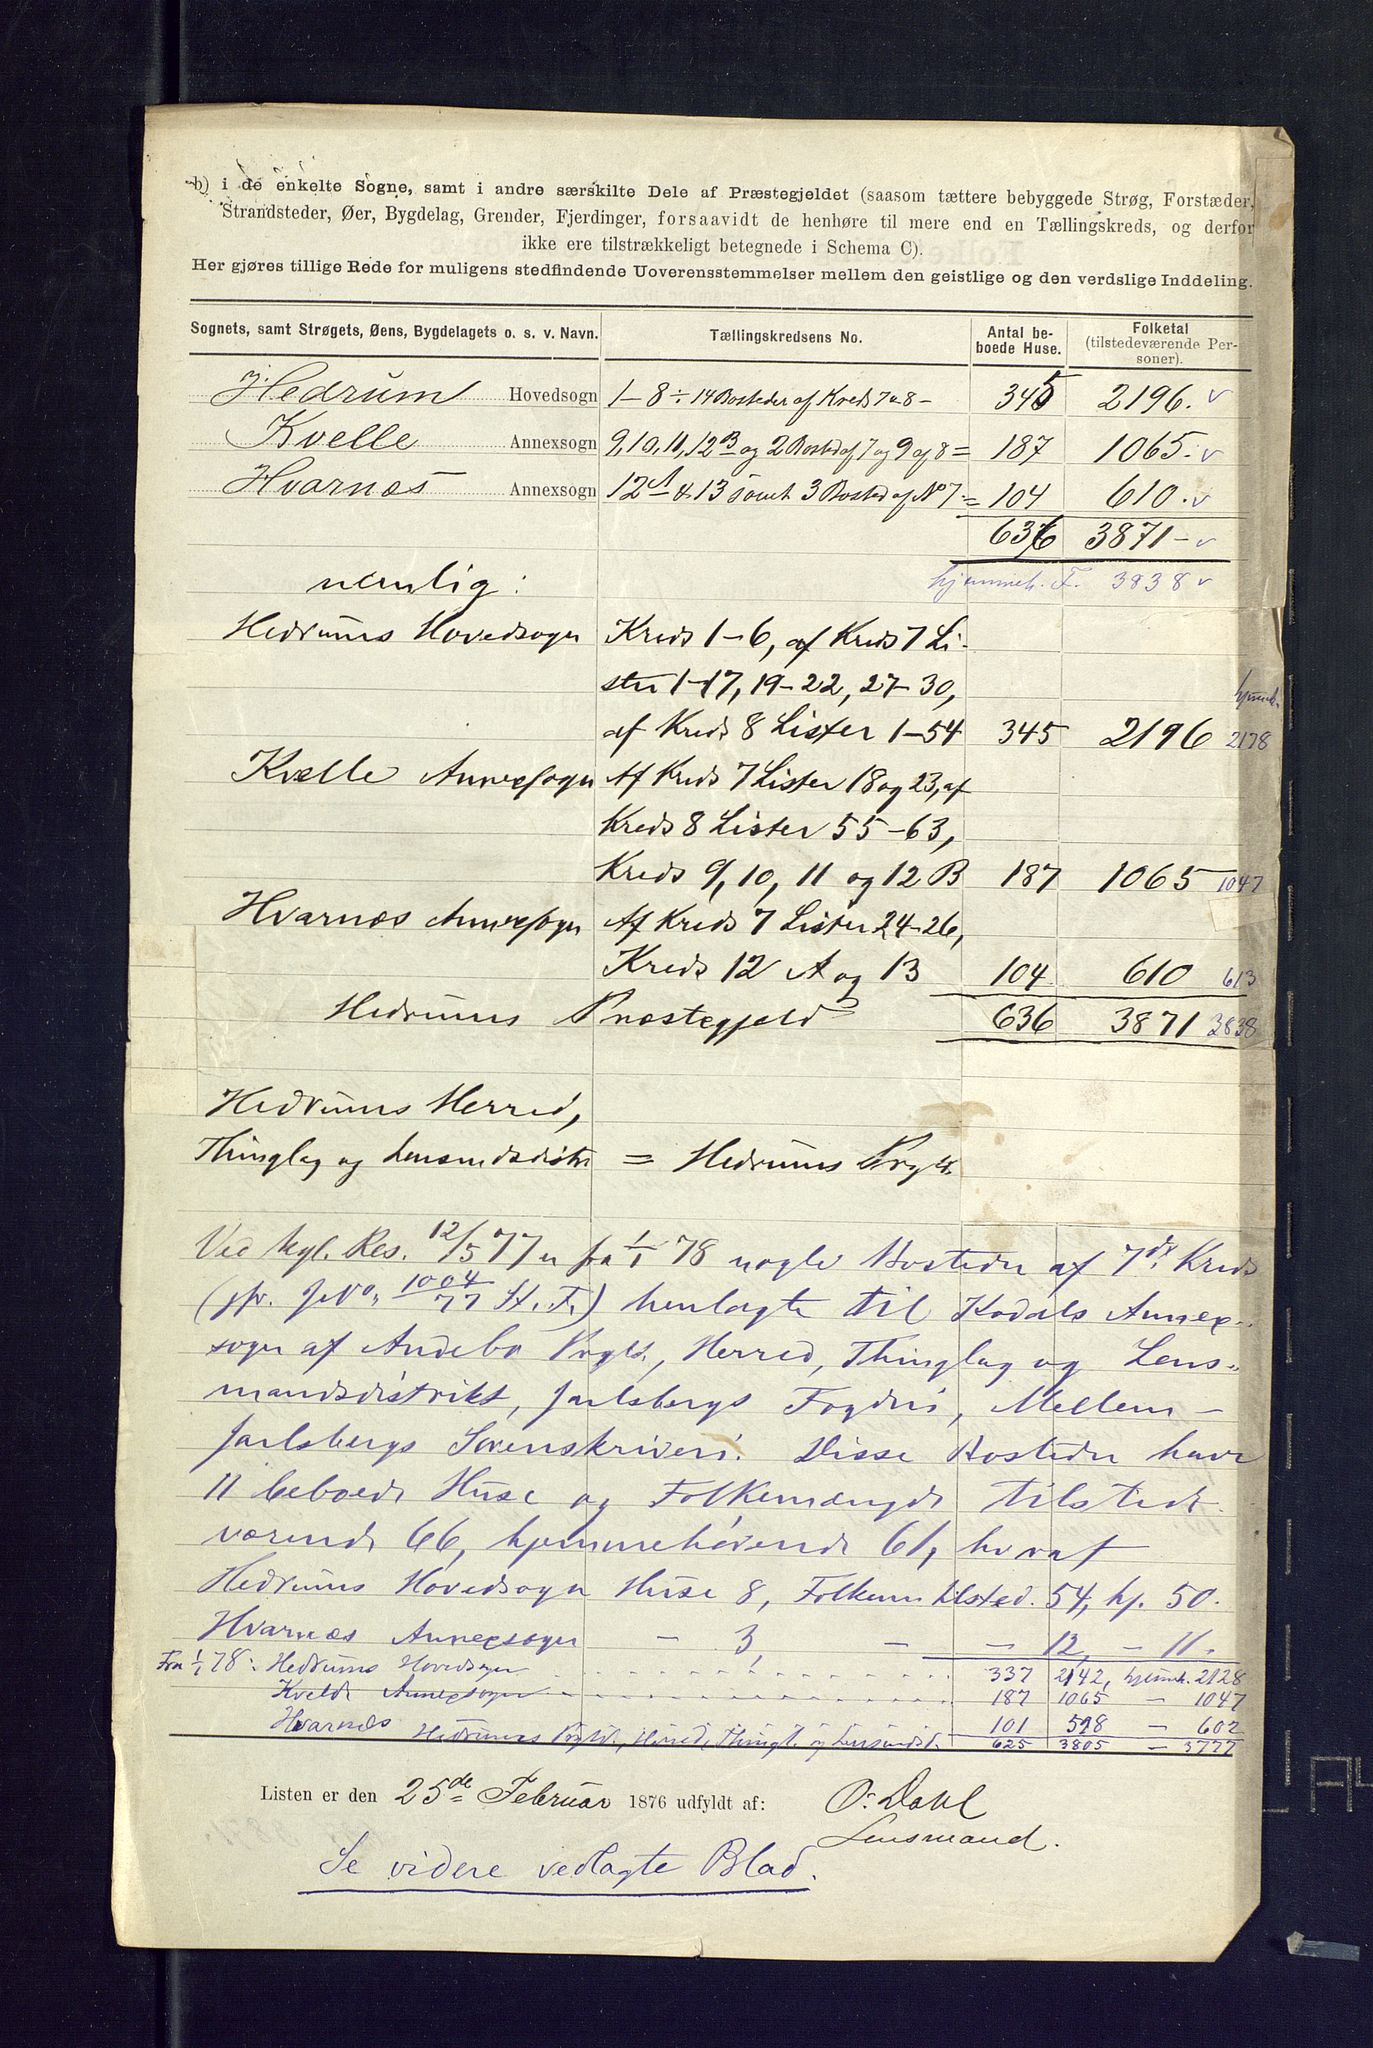 b) i de enkelte Sogne, samt i andre særskilte Dele af Præstegjeldet (saasom tættere bebyggede Strøg, Forstæder,
Strandsteder, Øer, Bygdelag, Grender, Fjerdinger, forsaavidt de henhøre til mere end en Tællingskreds, og derfor
ikke ere tilstrækkeligt betegnede i Schema C).
Her gjøres tillige Rede for muligens stedfindende Uoverensstemmelser mellem den geistlige og den verdslige Inddeling.
Sognets, samt Strøgets, Øens, Bygdelagets o. s. v. Navn. Tællingskredsens No. Antal beboede Huse. Folketal (tilstedeværende Personer).
Hedrum Hovedsogn 1-8 ÷ 14 Bosteder af Kreds 7 & 8 - 345 2196. v
Kvelle Annexsogn 9, 10, 11, 12 B og 2 Bosted af 7 og 9 af 8 = 187 1065. v
Hvarnæs Annexsogn 12 A & 13 samt 3 Bosted af No 7 = 104 610. v
636 3871 - v
nemlig: hjemmeh. F. 3838 v
Hedrums Hovedsogn Kreds 1-6, af Kreds 7 Li-
ster 1-17, 19-22, 27-30, hjemh.
af Kreds 8 Lister 1-54 345 2196 2178
Kvelle Annexsogn Af Kreds 7 Lister 18 og 23, af
Kreds 8 Lister 55-63,
Kreds 9, 10, 11 og 12 B 187 1065 1047
Hvarnæs Annexsogn Af Kreds 7 Lister 24-26,
Kreds 12 A og 13 104 610 613
Hedrums Præstegjeld 636 3871 3838
Hedrums Herred,
Thinglag og Lensmdsdistr = Hedrums Prgld.
Ved kgl. Res. 12/5 77 er fra 1/1 78 nogle Bosteder af 7de Kreds
(jfr. JNo. 1004/77 St. F.) henlagte til Kodals Annex-
sogn af Andebo Prgld., Herred, Thinglag og Lens-
mandsdistrikt, Jarlsbergs Fogderi, Mellem-
Jarlsbergs Sorenskriveri. Disse Bosteder have
11 beboede Huse og Folkemængde tilstede-
værende 66, hjemmehørende 61, hvoraf
Hedrums Hovedsogn Huse 8, Folkem. tilsted. 54, hj. 50.
Hvarnæs Annexsogn - 3, - - 12, - 11.
Fra 1/1 78: Hedrums Hovedsogn 337 2142, hjemh. 2128
Kvelde Annexsogn 187 1065 - 1047
Hvarnæs 101 598 - 602
Hedrums Prgld., Herred, Thingl. og Lensmdsd. 625 3805 - 3777
Listen er den 25de Februar 1876 udfyldt af: O. Dahl
Lensmand.
Se videre vedlagte Blad.